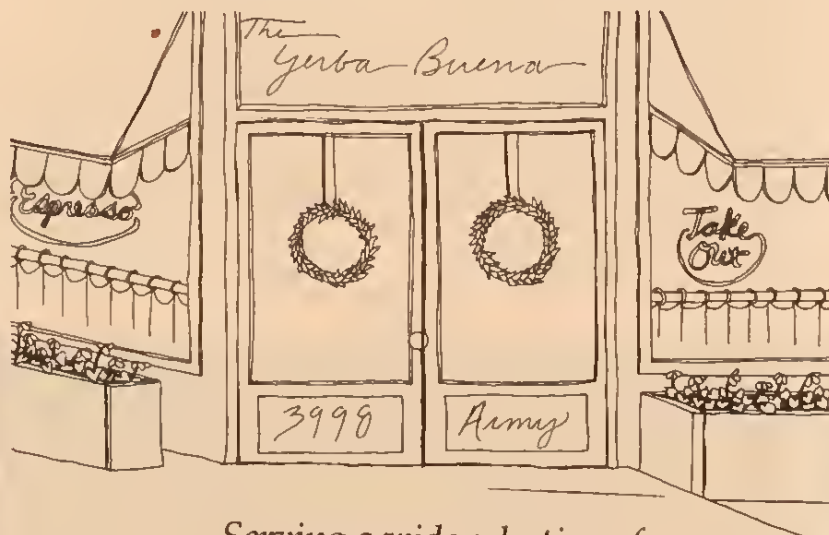 The
Yerba Buena
Espresso
Take
Out
3998
Army
Serving a wide selection of